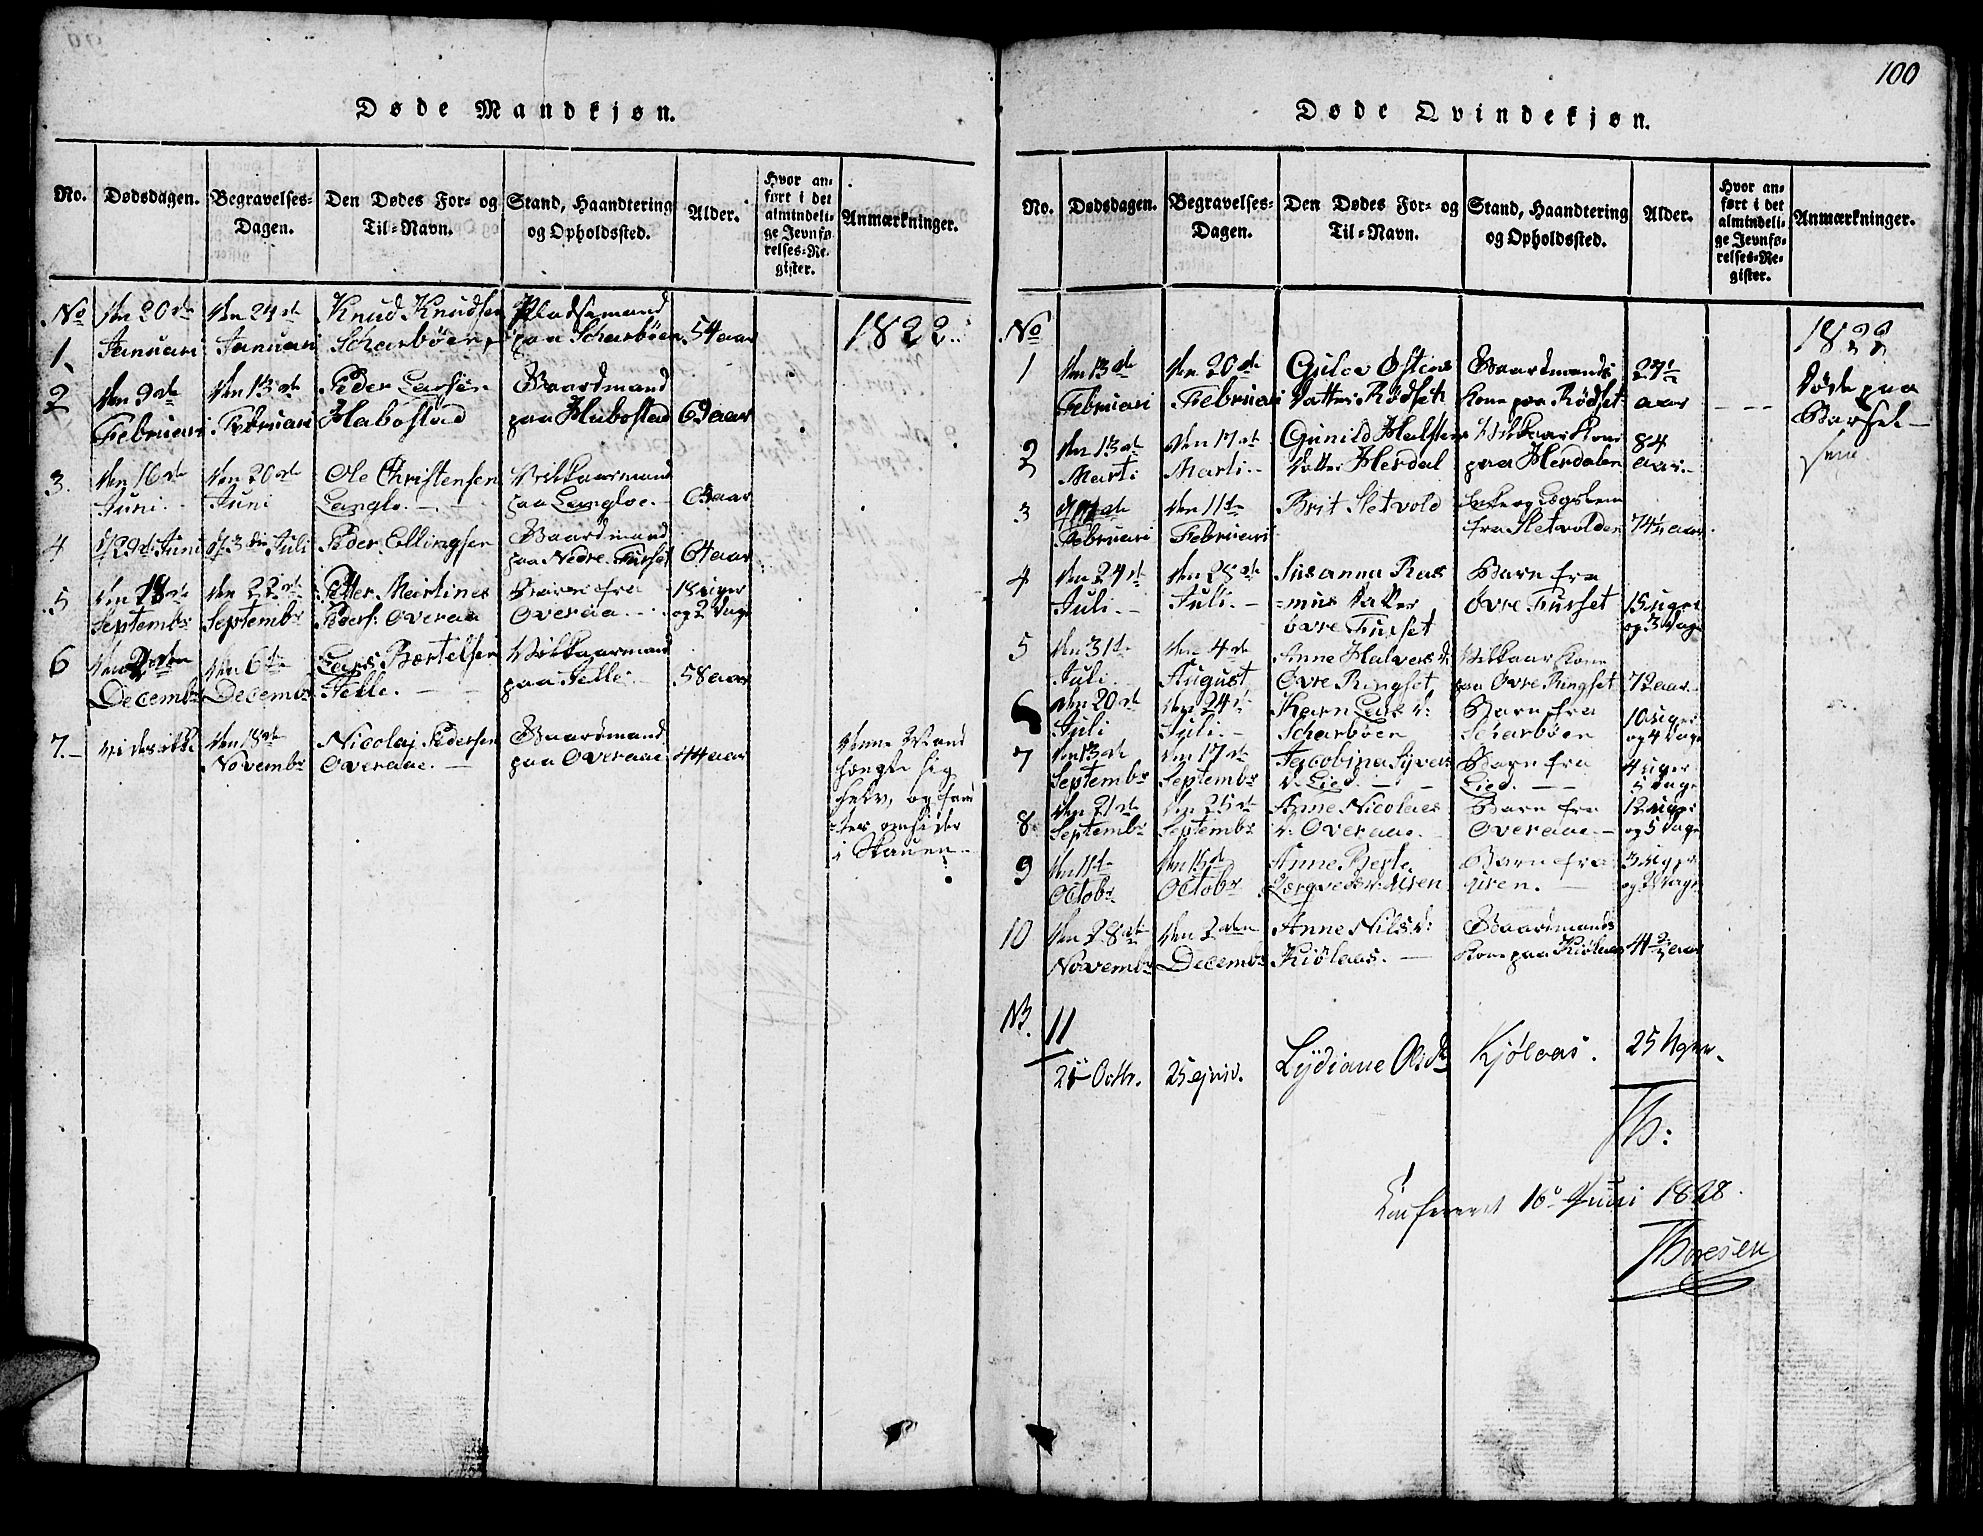 100
Døde Mandkjøn.
No.
Dødsdagen.
Begravelses=
Dagen.
Den Dødes For= og
Til=Navn.
Stand, Haandtering
og Opholdssted.
Alder.
Hvor an=
ført i det
almindeli=
ge Jevnfø=
relses=Re=
gister.
Anmærkninger.
No
1.
den 20de
Januari
den 24de
Januari
Knud Knudsen
Scharbøen
Pladsemand
paa Scharbøen
54 aar
1822.
2
den 9de
Februari
den 13de
Februari
Peder Larsen
Habostad
Gaardmand
paa Habostad
69 aar
3.
den 16de
Juni.
den 20de
Juni
Ole Christensen
Langlo.
Vilkaarmand
paa Langloe.
4
d 29de Juni
d 3de Juli
Peder Ellingsen
Gaardmand
paa Nedre Furset
64 aar
5
den 18de
Septembr
den 22de
Septembr
Petter Martinus
Peders: Overaa
Barn fra
Overaa.
18 uger
og 2 Dage
6
den 2den
Decembr
den 6te
Decembr
Lars Bertelsen
Felle.
Vilkaarmand
paa Felle.
58 aar
7.
vides ikke
den 18de
Novembr
Nicolaj Pedersen
Overaae.
Gaardmand
paa Overaae
44 aar
denne Mand
hængte sig
selv, og fan
tes omsider
i Skauen
Døde Qvindekjøn.
No.
Dødsdagen.
Begravelses=
Dagen.
Den Dødes For= og
Til=Navn.
Stand, Haandtering
og Opholdssted.
Alder.
Hvor an=
ført i det
almindeli=
ge Jevnfø=
relses=Re=
gister.
Anmærkninger.
No
1822
1
den 13de
Februari
den 20de
Februari
Gulov Østens
Datter Rødset
Gaardmands
Kone paa Rødset
27½
aar
døde paa
Barsel
seng.
2
den 13de
Marti
den 17de
Marti
Gunild Halstens
Datter Herdal
Vilkaar Kone
paa Herdalen
84
aar
3
Februari
den 11te
Februari
Brit Sletvold
fra Sletvolden
74½ aar
4
den 24de
Juli.
den 28de
Juli.
Susanna Ras
=mus Datter
øvre Furset
Barn fra
Øvre Furset
15 uger
og 3 Dage
5
den 31te
Juli.
den 4de
August
Anne Halvers d.
Øvre Ringset
Vilkaar Kone
paa Øvre Ringset
72 aar
6
den 20de
Juli
den 24de
Juli.
Karn Lars d:
Scharbøen
Barn fra
Scharbøen
10 uger
og 4 Dage
7
den 13de
Septembr
den 17de
Septembr
Jacobina Syvers
d. Lied.
Barn fra
Lied.
4 uger
5 Dage
8.
den 21de
Septembr
den 25de
Septembr
Anne Nicolaes
d. Overaae.
Barn fra
Overaae.
12 uger
og 5 Dage
9
den 11te
Octobr
den 15de
Octobr
Anne Berte
Barn fra
Uren.
3 uger
og 2 Dage
10
den 28de
Novembr
den 2den
Decembr
Anne Nils d:
Kiølaas.
Gaardmands
Kone paa Kiølaas
NB.
11
21 Octbr.
25 ejusd.
Lydiane Ols d
Kjølaas.
25 Uger.
Th:
Confereret 16 Juni 1828.
Thoresen